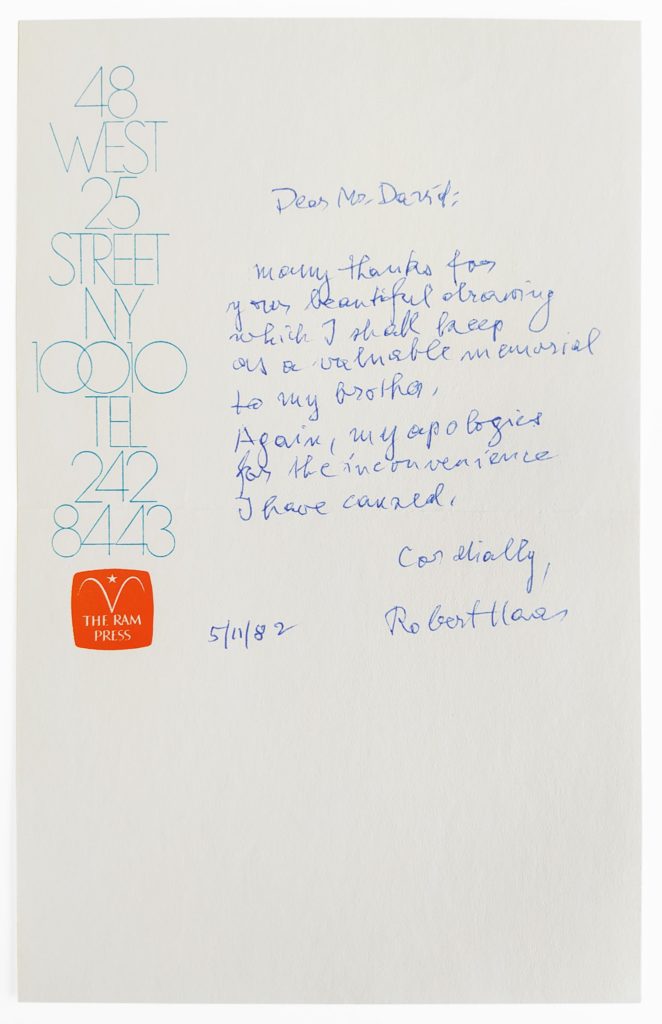 48
WEST
25
STREET
NY
10010
TEL
242
8443
THE RAM
PRESS
Dear Mr. David:
many thanks for
your beautiful drawing
which I shall keep
as a valuable memorial
to my brother.
Again, my apologies
for the inconvenience
I have caused.
Cordially,
Robert Haas
5/11/82